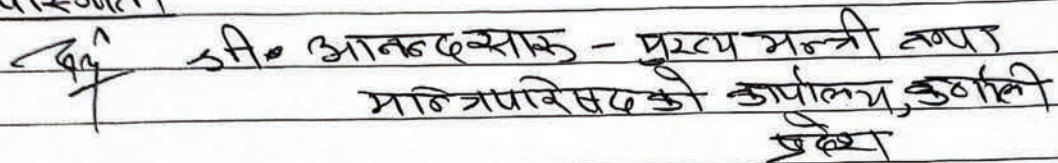 श्री आनन्द सारु - मुख्य मन्त्री तथा
मन्त्रिपरिषदको कार्यालय, कर्णाली
प्रदेश